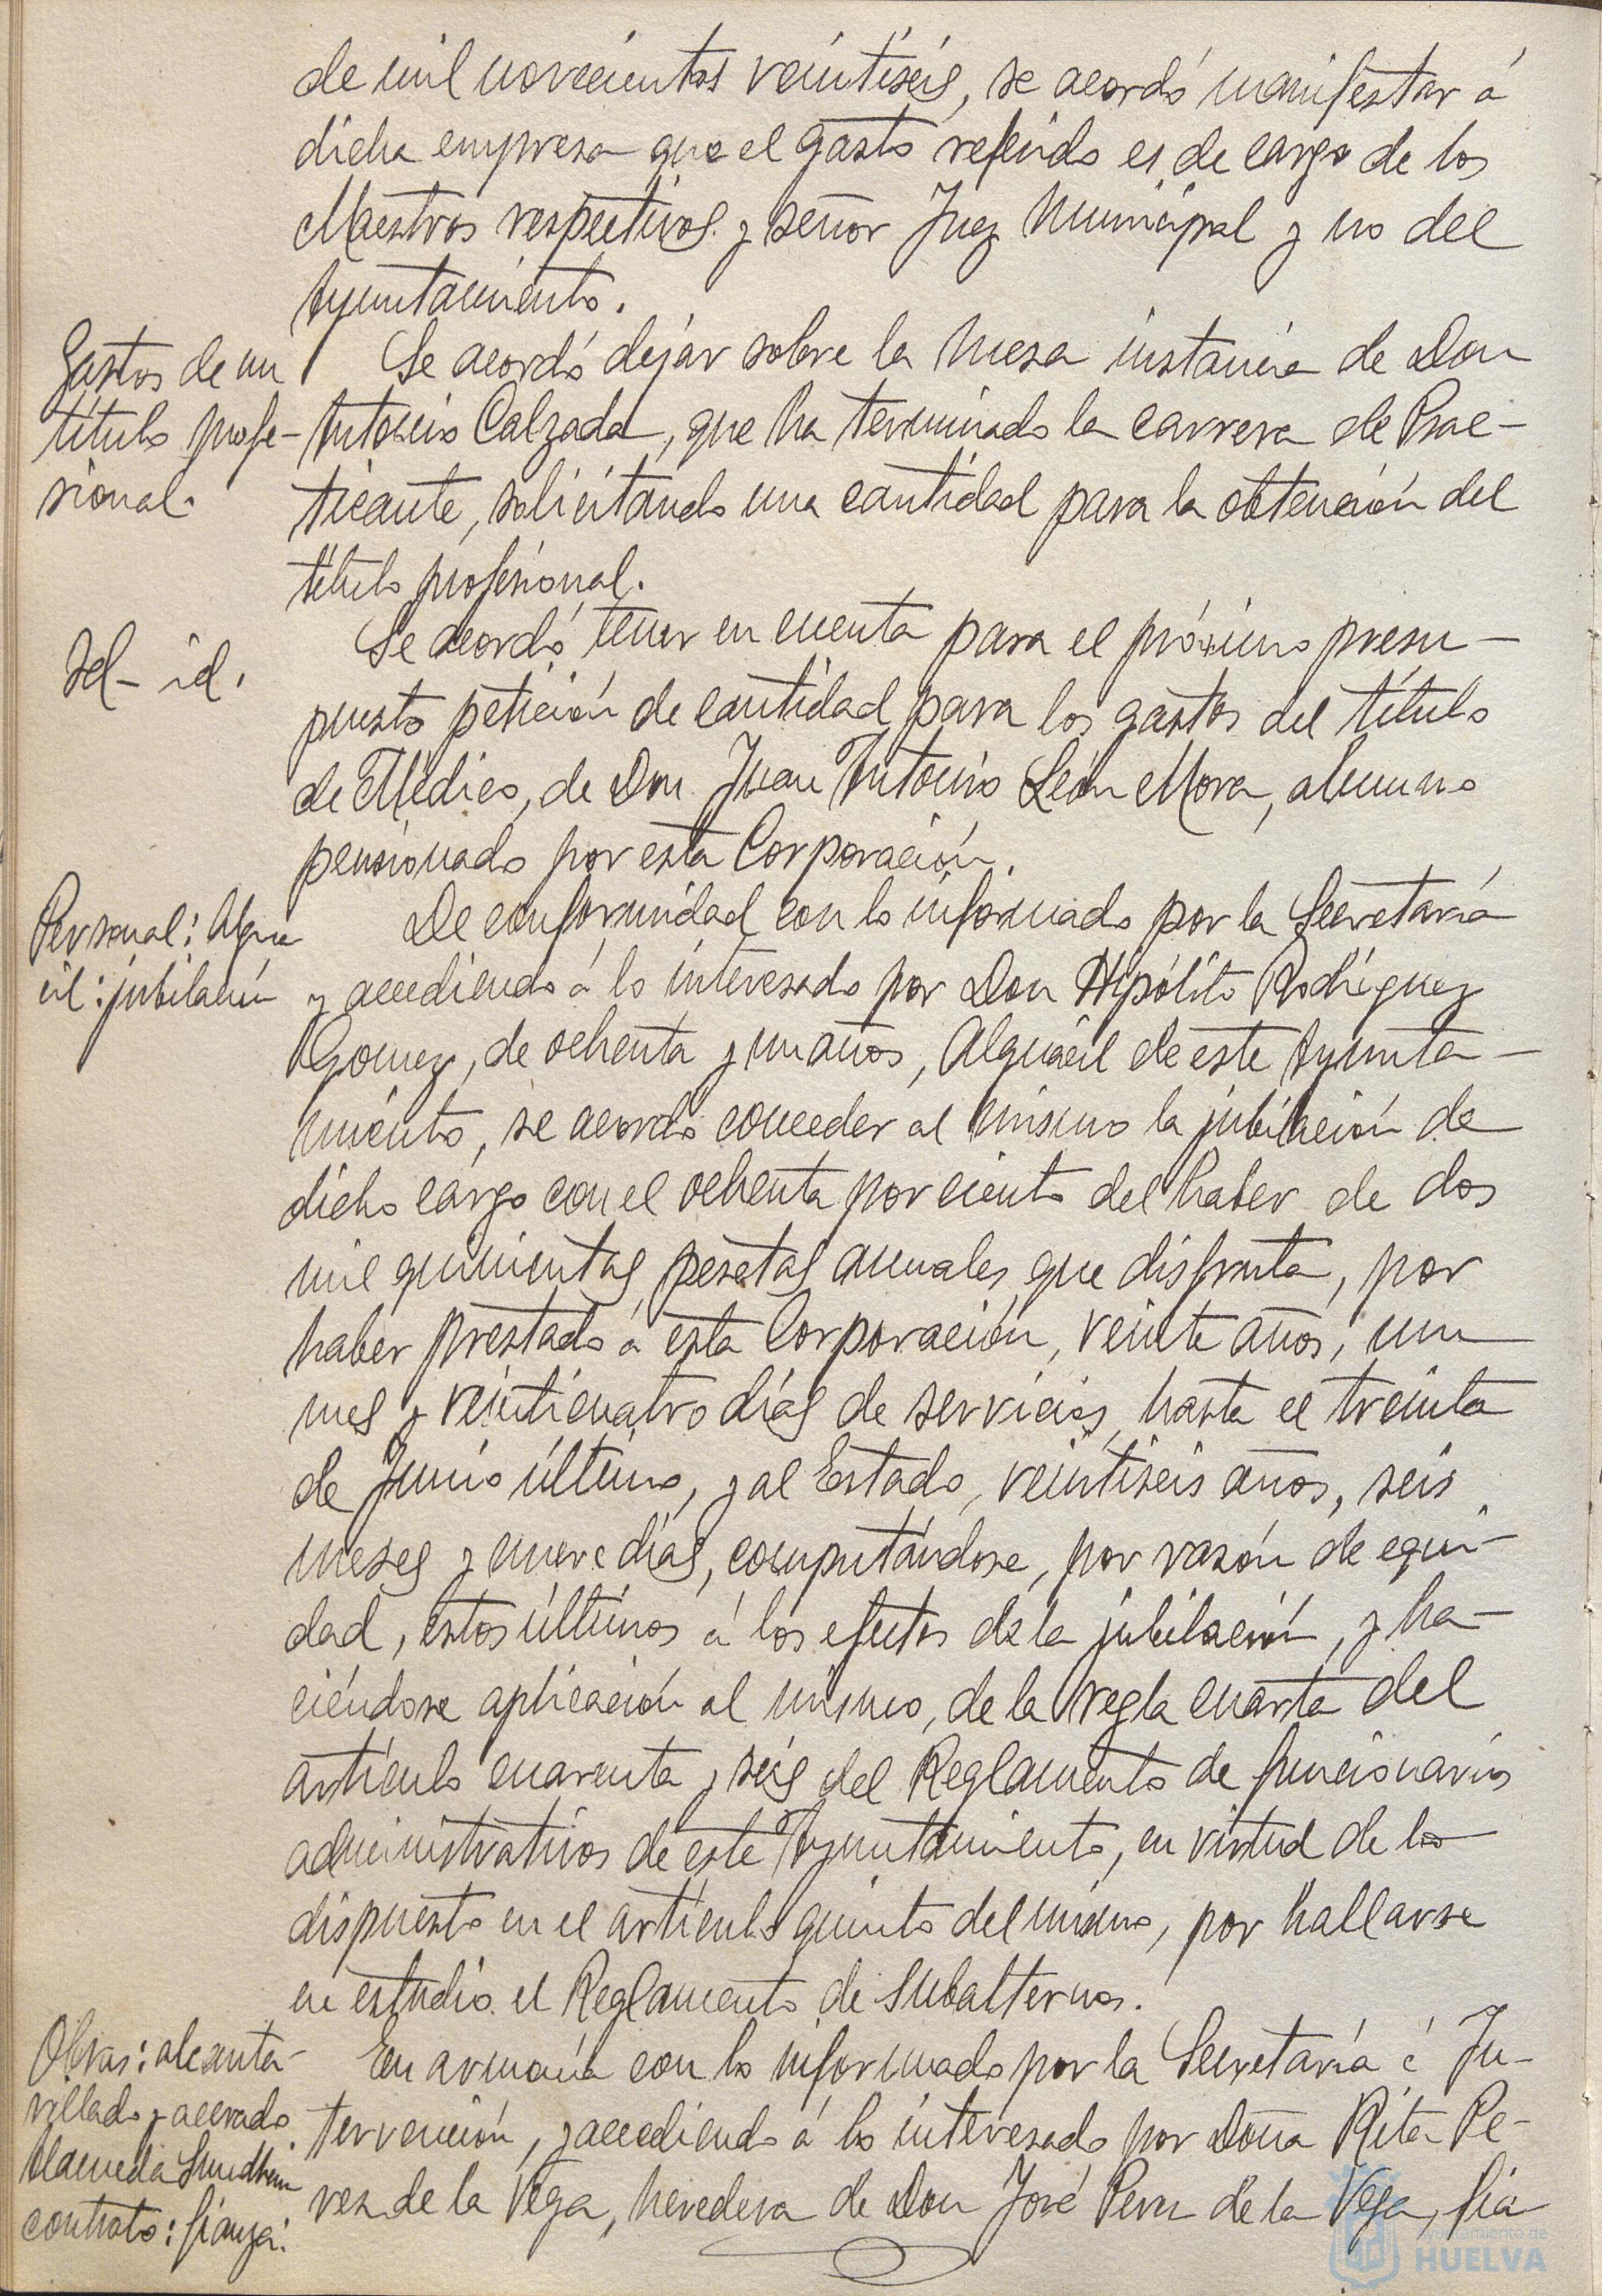 de mil novecientos veintiséis, se acordó manifestar á
dicha empresa que el gasto referido es de cargo de los
Maestros respectivos y señor Juez Municipal y no del
Ayuntamiento.
Gastos de un
título profe-
sional.
Se acordó dejar sobre la mesa instancia de Don
Antonio Calzada, que ha terminado la carrera de Prac-
ticante, solicitando una cantidad para la obtención del
título profesional.
Id - id.
Se acordó tener en cuenta para el próximo presu-
puesto petición de cantidad para los gastos del título
de Médico, de Don Juan Antonio León Mora, alumno
pensionado por esta Corporación.
Personal: Algua
cil: jubilación
De conformidad con lo informado por la Secretaría
y accediendo á lo interesado por Don Hipólito Rodríguez
Gomez, de ochenta y un años, Alguacil de este Ayunta-
miento, se acordó conceder al mismo la jubilación de
dicho cargo con el ochenta por ciento del haber de dos
mil quinientas pesetas anuales que disfruta, por
haber prestado á esta Corporación, veinte años, un
mes y veinticuatro días de servicios, hasta el treinta
de Junio último, y al Estado, veintiséis años, seis
meses y nueve días, computándose, por razón de equi-
dad, estos últimos á los efectos de la jubilación, y ha-
ciéndose aplicación al mismo, de la regla cuarta del
artículo cuarenta y seis del Reglamento de funcionarios
administrativos de este Ayuntamiento, en virtud de lo
dispuesto en el artículo quinto del mismo, por hallarse
en estudio el Reglamento de Subalternos.
Obras: alcanta-
rillado y acerado
Alameda Sundheim
contrato: fianza.
En armonía con lo informado por la Secretaría é In-
tervención, y accediendo á lo interesado por Doña Rita Pe-
rez de la Vega, heredera de Don José Perez de la Vega, fia-
Ayuntamiento de
HUELVA